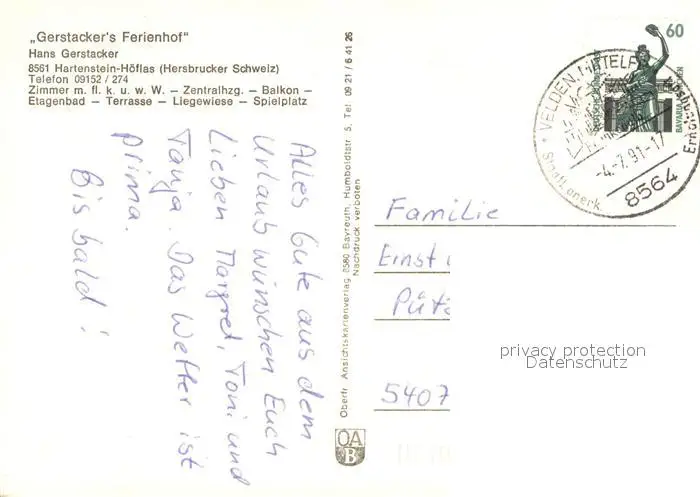 „Gerstacker's Ferienhof"
Hans Gerstacker
8561 Hartenstein-Höflas (Hersbrucker Schweiz)
Telefon 09152 / 274
Zimmer m. fl. k. u. w. W. – Zentralhzg. – Balkon –
Etagenbad – Terrasse – Liegewiese – Spielplatz
Alles Gute aus dem
Urlaub wünschen Euch
Lieben Margret, Toni und
Tanja. Das Wetter ist
prima.
Bis bald!
Oberfr. Ansichtskartenverlag 8580 Bayreuth, Humboldtstr. 5, Tel. 09 21 / 6 41 26
Nachdruck verboten
OA
B
60
DEUTSCHE BUNDESPOST
BAVARIA MÜNCHEN
VELDEN, MITTELFR
-4.-7.91-17
8564
Staatl. anerk.
Familie
Einst
Pütz
5407
privacy protection
Datenschutz